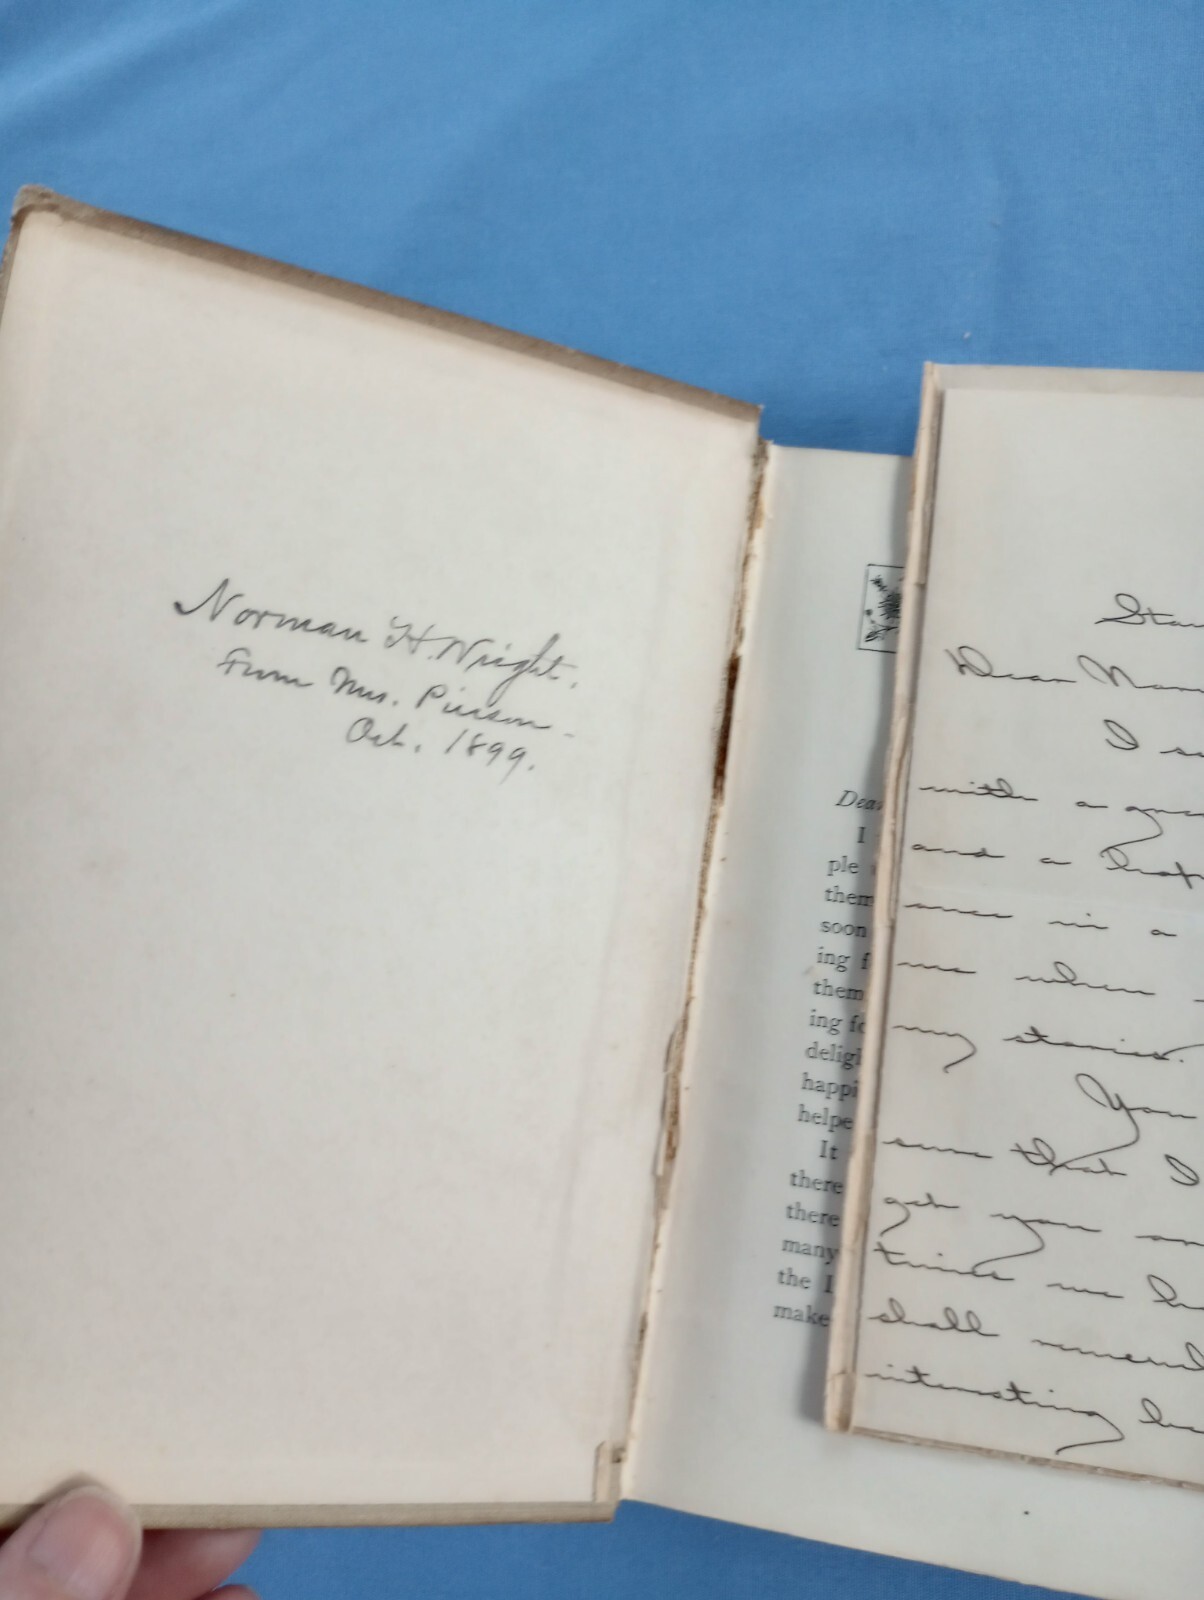 Norman H. Wright.
From Mrs. Pierson.
Oct. 1899.
Dear
I
ple
them
soon
ing
them
ing
deligh
happi
helpe
It
there
there
many
the
make
Dear
I
with a
and a
ance in a
me when
my stories.
You
sure that I
get you
times me
shall
interesting